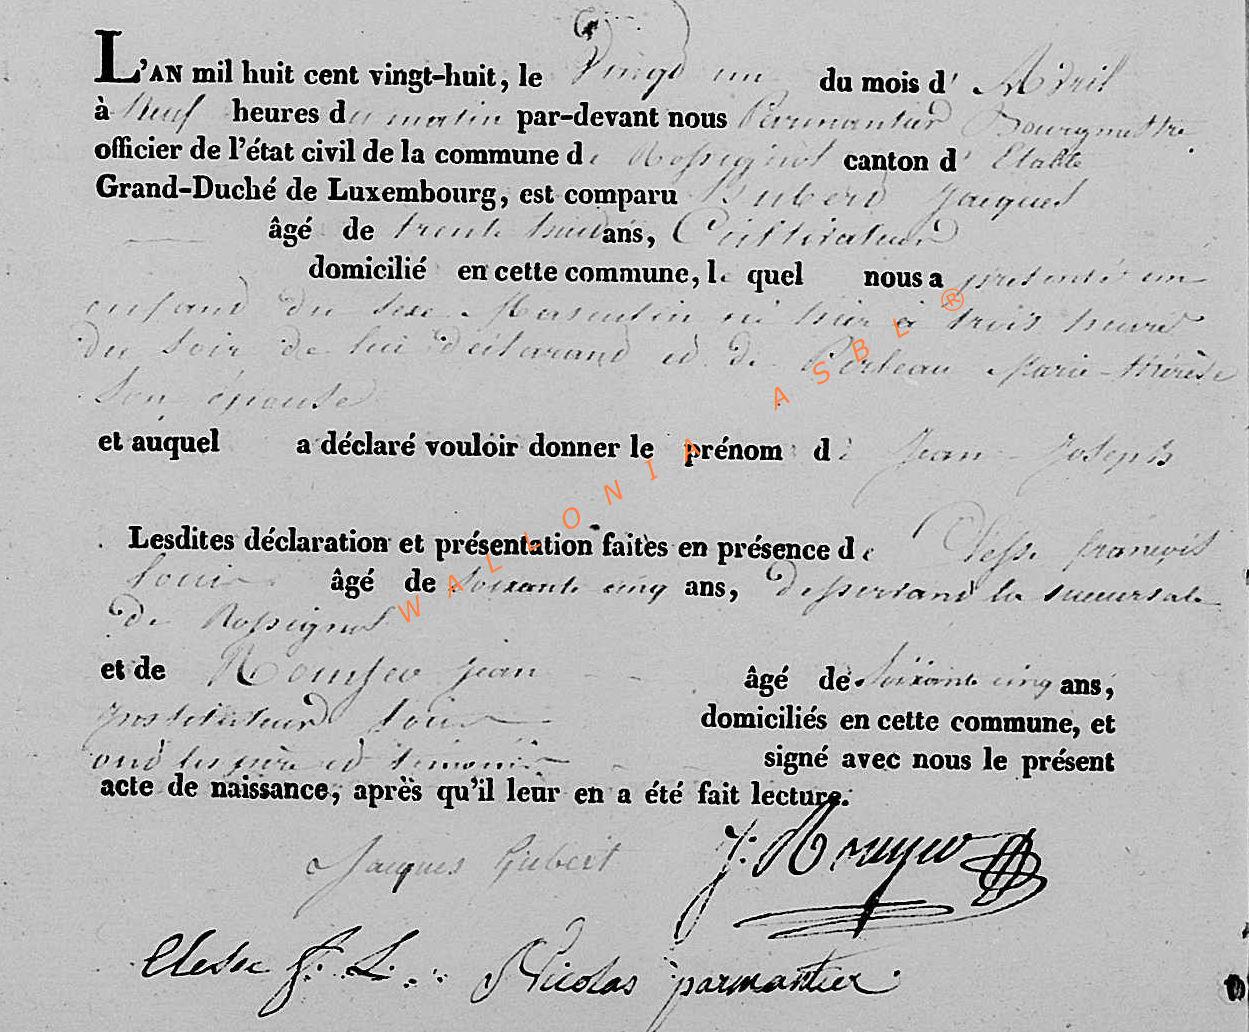 L'AN mil huit cent vingt-huit, le Vingt un du mois d' Avril
à Neuf heures du matin par-devant nous Bourgmettre
officier de l'état civil de la commune de Rossignol canton d' Etalle
Grand-Duché de Luxembourg, est comparu Hubert Jacques
âgé de trente huit ans, Cultivateur
domicilié en cette commune, le quel nous a présenté un
enfant du sexe Masculin né hier à trois heures
du soir de lui déclarant et de Marie-thérèse
son épouse
et auquel a déclaré vouloir donner le prénom de Jean-Joseph
Lesdites déclaration et présentation faites en présence de françois
Louis âgé de soixante cinq ans, desservant la succursale
de Rossignol
et de jean âgé de soixante cinq ans,
domiciliés en cette commune, et
ont les père et témoins signé avec nous le présent
acte de naissance, après qu'il leur en a été fait lecture.
Jacques hubert J:
f. L. Nicolas parmantier
WALLONIA ASBL ®